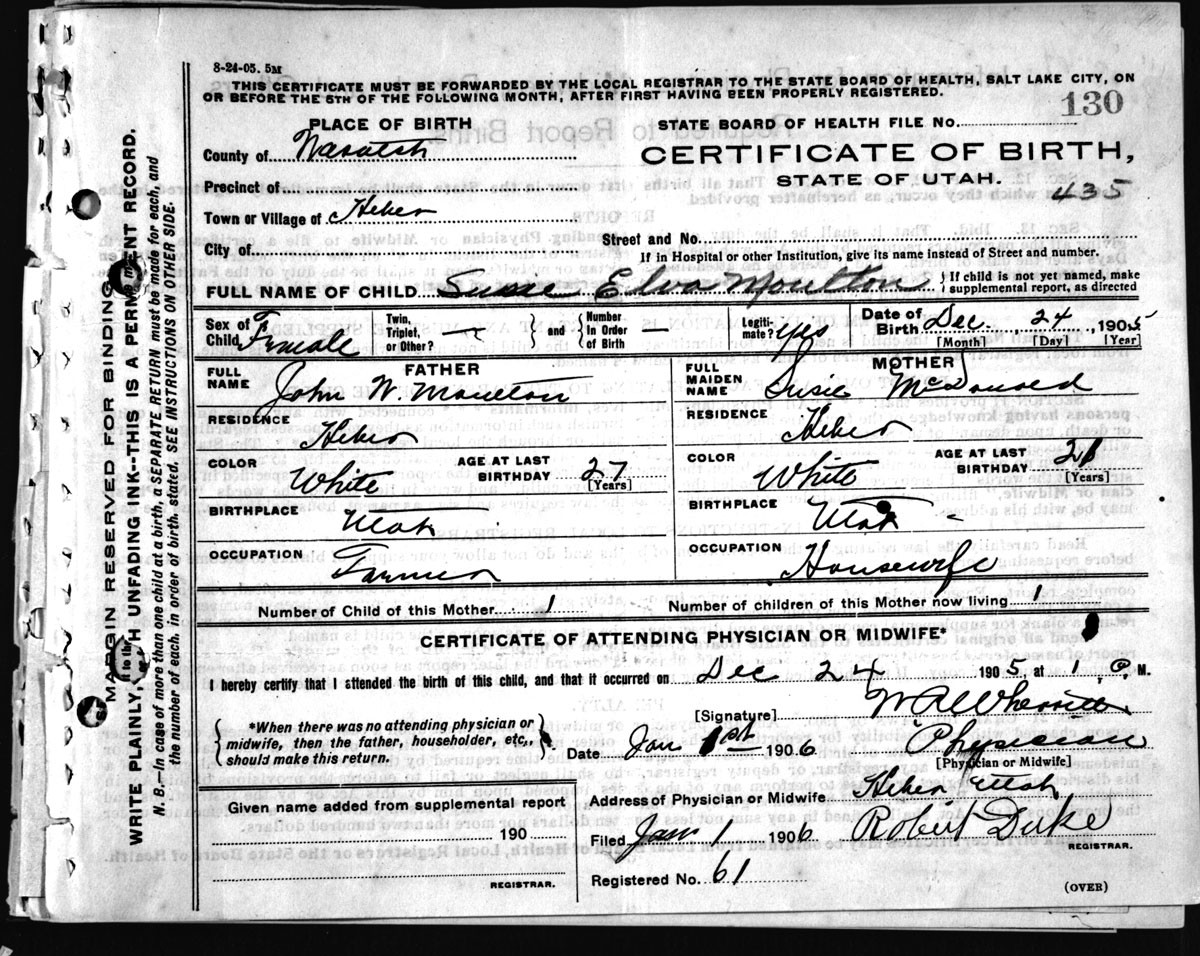 8-24-05. 5M
THIS CERTIFICATE MUST BE FORWARDED BY THE LOCAL REGISTRAR TO THE STATE BOARD OF HEALTH, SALT LAKE CITY, ON
OR BEFORE THE 5TH OF THE FOLLOWING MONTH, AFTER FIRST HAVING BEEN PROPERLY REGISTERED.
130
PLACE OF BIRTH
STATE BOARD OF HEALTH FILE No.
County of Wasatch
CERTIFICATE OF BIRTH,
STATE OF UTAH.
435
Precinct of
Town or Village of Heber
City of
Street and No.
If in Hospital or other Institution, give its name instead of Street and number.
FULL NAME OF CHILD Susie Elva Moulton } If child is not yet named, make supplemental report, as directed
Sex of Child Female
Twin, Triplet, or Other? } and { Number In Order of Birth
Legitimate? Yes
Date of Birth Dec. 24, 1905
[Month] [Day] [Year]
FATHER
FULL NAME John W. Moulton
MOTHER
FULL MAIDEN NAME Susie McDonald
RESIDENCE Heber
RESIDENCE Heber
COLOR White AGE AT LAST BIRTHDAY 27 [Years]
COLOR White AGE AT LAST BIRTHDAY 21 [Years]
BIRTHPLACE Utah
BIRTHPLACE Utah
OCCUPATION Farmer
OCCUPATION Housewife
Number of Child of this Mother 1 Number of children of this Mother now living 1
CERTIFICATE OF ATTENDING PHYSICIAN OR MIDWIFE*
I hereby certify that I attended the birth of this child, and that it occurred on Dec 24 1905, at 1, P. M.
{ *When there was no attending physician or midwife, then the father, householder, etc., should make this return. }
[Signature] W R Wherritt
Date Jan 1st 1906 Physician
[Physician or Midwife]
Given name added from supplemental report
190
REGISTRAR.
Address of Physician or Midwife Heber Utah
Filed Jan 1 1906 Robert Duke
REGISTRAR.
Registered No. 61
(OVER)
MARGIN RESERVED FOR BINDING
WRITE PLAINLY, WITH UNFADING INK--THIS IS A PERMANENT RECORD.
N. B.—In case of more than one child at a birth, a SEPARATE RETURN must be made for each, and
the number of each, in order of birth, stated. SEE INSTRUCTIONS ON OTHER SIDE.